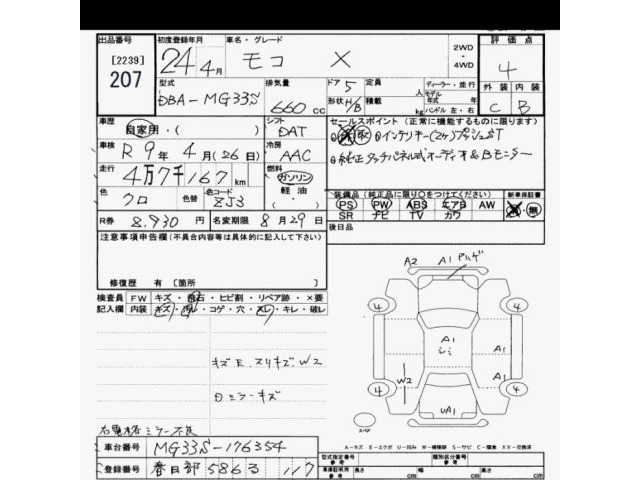 出品番号 初度登録年月 車名・グレード 2WD・4WD 評価点
[2239]
207
24年 4月 モコ X 4
型式 排気量 ドア 5 定員 ディーラー・並行 外装 内装
DBA-MG33S 660cc 形状 H/B 積載 kg モデル年式 年 ハンドル 左・右 C B
車歴 自家用・( ) シフト DAT セールスポイント（正常に機能するものに限ります）
車検 R 9年 4月(26日) 冷房 AAC
走行 4万7千167km 燃料 ガソリン・軽油・
色 クロ 色替 色コード ZJ3 装備品（純正品に限り○をつけてください） 新車保証書
PS PW ABS エアB AW 有・無
SR ナビ TV カワ
R券 8,930円 名変期限 8月29日 後日品
注意事項申告欄（不具合内容等は具体的に記入して下さい）
修復歴 有 [箇所 ]
A2 A1
検査員記入欄 FW キズ・飛石・ヒビ割・リペア跡・×要
内装 キズ・汚レ・コゲ・穴・スレ・キレ・破レ
4 4
A1
A1
キズE.スリキズ.W2 W2
4 4
Dミラーキズ UA1
右電格ミラー不良 スペア
車台番号 MG33S-176354 A-キズ E-エクボ U-凹み W-補修跡 S-サビ C-腐食 XX-交換済
登録番号 春日部 586 る 117 型式指定番号 参考 類別区分番号 参考
車庫証明用参考 長さ cm 幅 cm 高さ cm